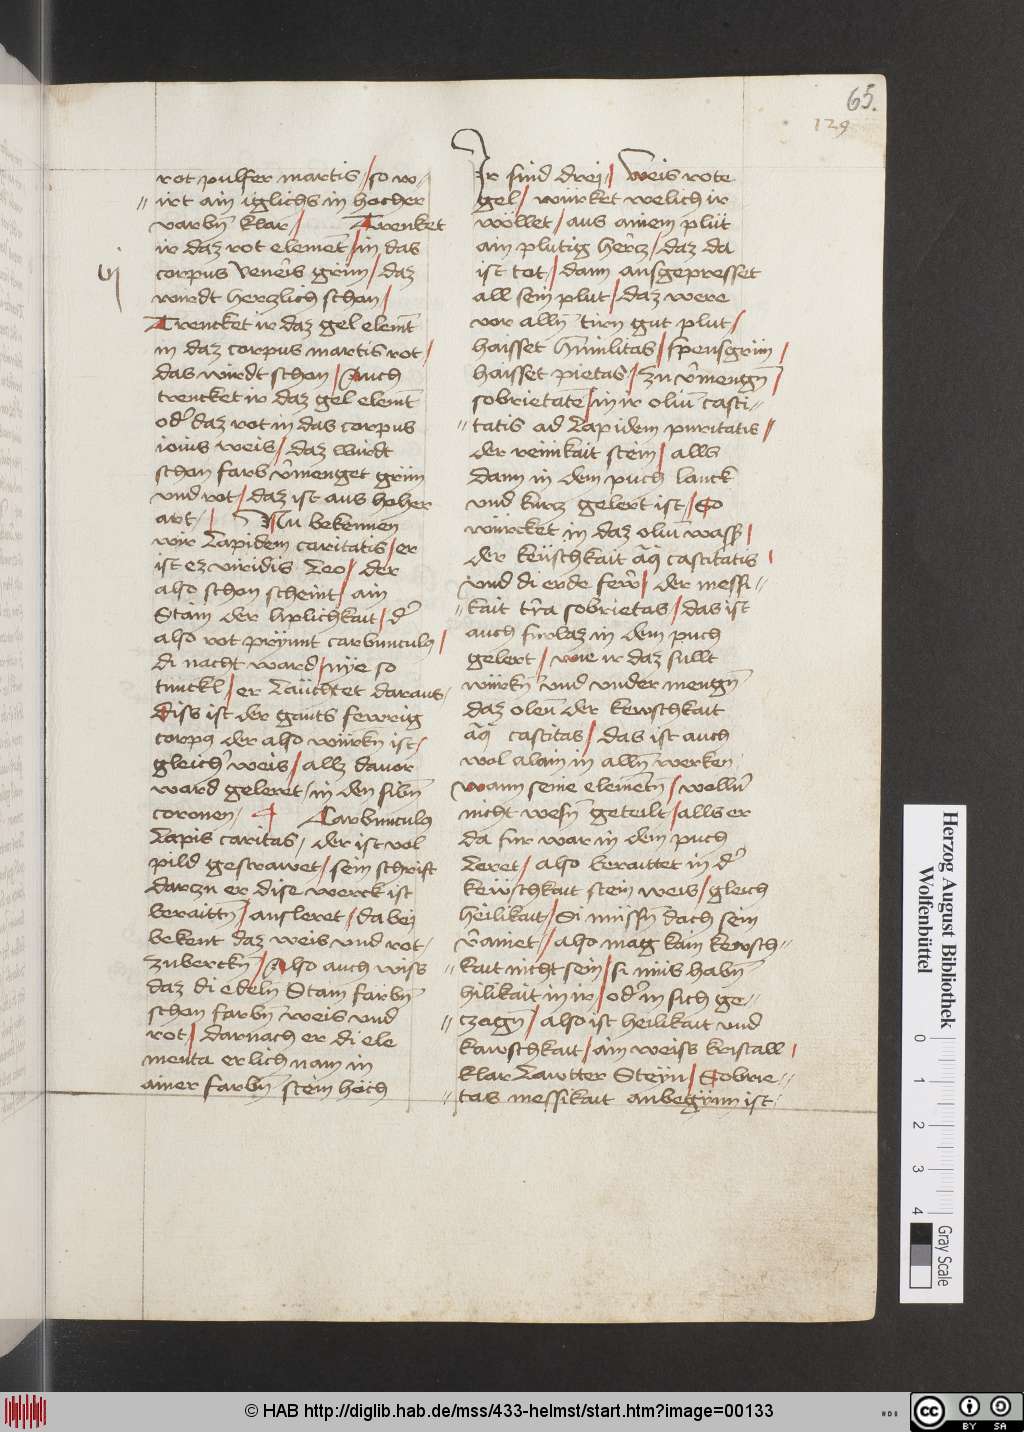 65.
129
rot pulfer martis / so w-
irt ain iglichs in hocher
varbn̄ klar / Trenket
ir daz rot elemēt / in das
corpus veneris grün / daz
wirdt herzlich schon /
Trencket ir daz gel elemt̄
in daz corpus martis rot /
das wirdt schon / Auch
trencket ir daz gel elemt̄
od̓ daz rot in das corpus
iouis weis / daz wirdt
schon farb v̓menget grün
vnd rot / daz ist aus hoher
art / Nu bekennen
wir Lapidem caritatis / er
ist ez viridis Leo / der
also schon scheint / ain
Stain der liplichkait / d̓
also rot prÿnnt carbunculꝯ /
di nacht ward / nÿe so
tunckl / er Laüchtet daraus /
Diss ist der gants fewrig
corpꝯ der also würkn̄ ist /
gleich̓ weis / allz dauor
ward geleret / in den sibn̄
coronen / Carbunculꝯ
Lapis caritas / der ist vol
pild gestrawet / sein schrift
darczu er dise werck ist
beraittn̄ / ausleret / da beÿ
bekent daz weis vnd rot /
zuberckn̄ / Also auch wiss
daz di edeln̄ Stain farbn̄
schon farbn̄ weis vnd
rot / darnach er di ele
menta erlich nam in
ainer farbn̄ stein hoch
Ir sind drei / Weis rote
gel / würket welich ir
wöllet / aus ainem plut
ain plutig hercz / daz da
ist tot / dann ausgepresset
all sein plut / daz were
vor alln̄ tirn gut plut /
haisset humilitas / spensgrün /
haisset pietas / zu v̓mengn̄ /
sobrietatē / in ir oliū casti-
tatis ad Lapidem puritatis /
der reinikait stein / alls
dann in dem puch lanck
vnd kurz gelert ist / So
würcket in daz oliū wass̓ /
der keüschkait aq̄ castitatis /
vnd di erde ferr̄ / der messi-
kait tr̄ra sobrietas / das ist
auch furbaz in dem puch
gelert / wie ir daz sullt
würkn̄ vnd vnder mengn̄
daz oleū der kewschkait
aq̄ castitas / das ist auch
wol alain in alln̄ werken
wann seine elementn̄ / wolln̄
nicht wesn̄ geteilt / alls er
da fur war in dem puch
Leret / also berauttet in d̓
keüschkait stein weis / gleich
heilikait / Si müssn̄ dach sein
v̓ainet / also mag kain kewsch-
kait nicht sein / si müs habn̄
hilikait in ir / od̓ in sich ge-
czogn̄ / also ist heilikait vnd
kawschkait / ain weiss kristall /
klar Lawtter Steÿn / Sobrie-
tas messikait anbegynn ist
Herzog August Bibliothek
Wolfenbüttel
0 1 2 3 4
Gray Scale
© HAB http://diglib.hab.de/mss/433-helmst/start.htm?image=00133
HAB
cc BY SA